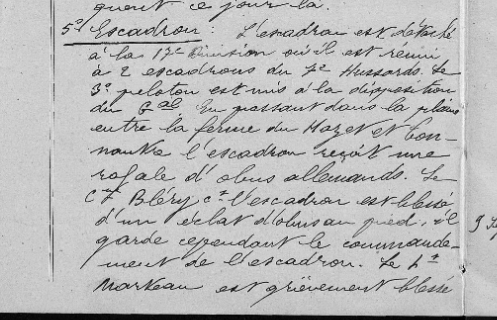 quent ce jour là.
5e Escadron : L'escadron est détaché
à la 17e Division où il est réuni
à 2 escadrons du 7e Hussards. Le
3e peloton est mis à la disposition
du Gal En passant dans la plaine
entre la ferme du Hozet et Con-
nantre l'escadron reçoit une
rafale d'obus allemands. Le
Cne Bléry ct l'escadron est blessé
d'un éclat d'obus au pied, il
garde cependant le commande-
ment de l'escadron. Le Lt
Marteau est grièvement blessé
9